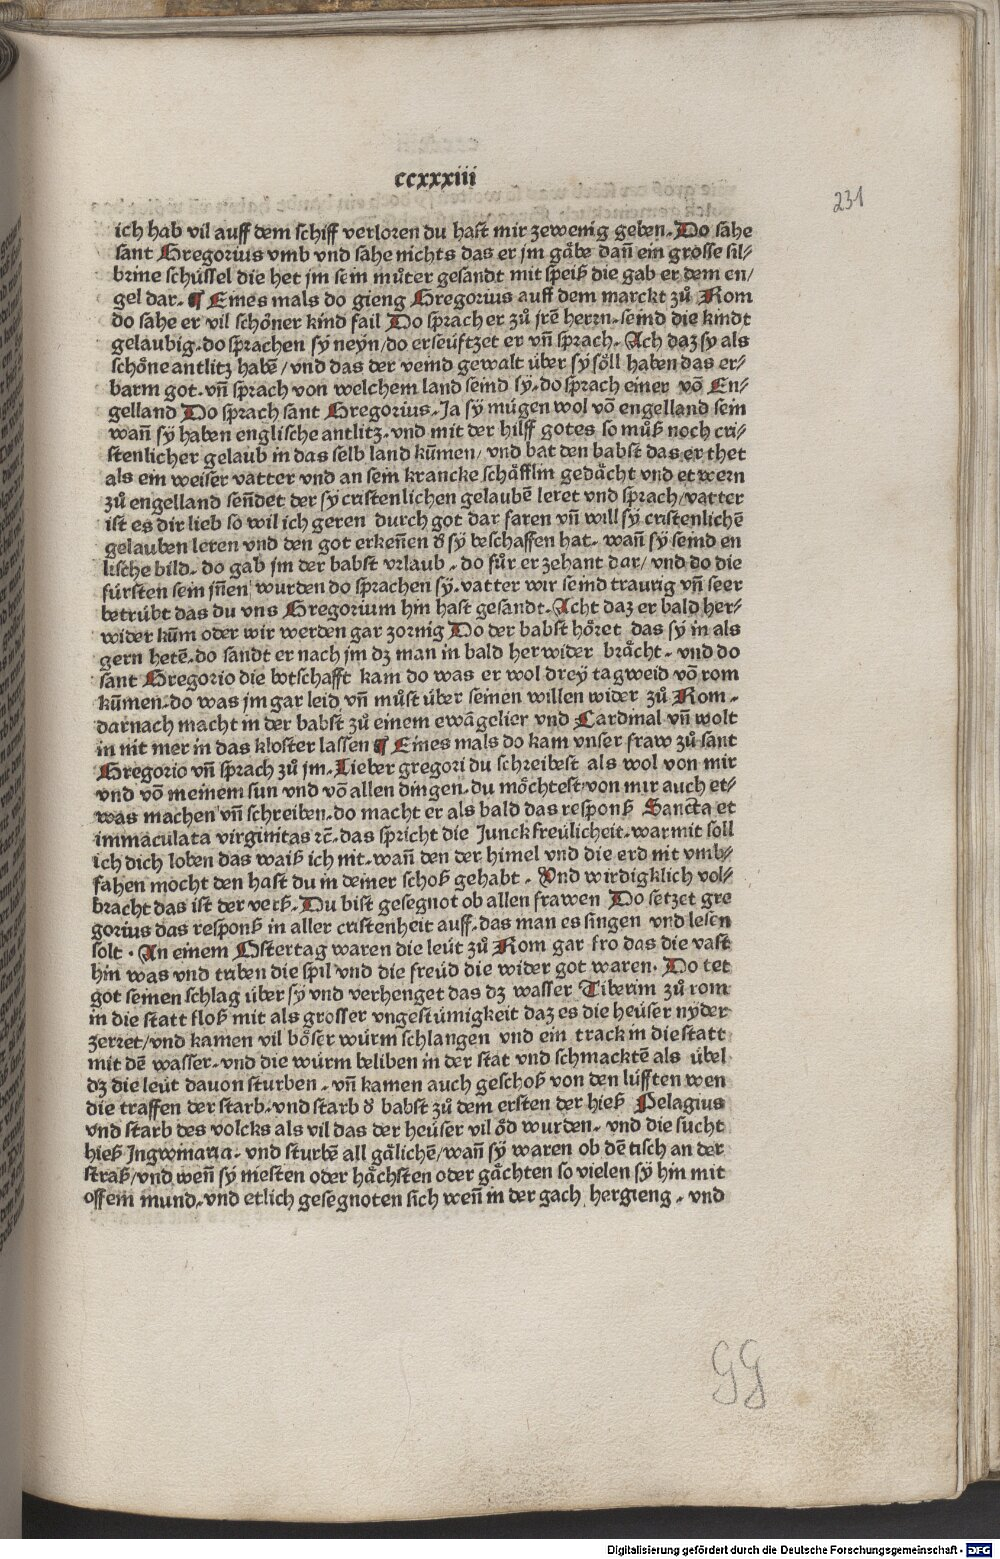 ccxxxiii
231
ich hab vil auff dem schiff verloren du hast mir zewenig geben. Do sahe
sant Gregorius vmb vnd sahe nichts das er jm gåbe dañ ein grosse sil⸗
brine schüssel die het jm sein můter gesandt mit speiß die gab er dem en/
gel dar. ¶ Eines mals do gieng Gregorius auff dem marckt zů Rom
do sahe er vil schöner kind fail Do sprach er zů jrē herrn. seind die kindt
gelaubig. do sprachen sy neyn/ do erseüftzet er vñ sprach. Ach daz sy als
schöne antlitz habē / vnd das der veind gewalt über sy söll haben das er⸗
barm got. vñ sprach von welchem land seind sy. do sprach einer vō En⸗
gelland Do sprach sant Gregorius. Ja sy mügen wol vō engelland sein
wañ sy haben englische antlitz. vnd mit der hilff gotes so můß noch cri⸗
stenlicher gelaub in das selb land kūmen/ vnd bat den babst das er thet
als ein weiser vatter vnd an sein krancke schåfflin gedåcht vnd et wern
zů engelland señdet der sy cristenlichen gelaubē leret vnd sprach/ vatter
ist es dir lieb so wil ich geren durch got dar faren vñ will sy cristenlichē
gelauben leren vnd den got erkeñen ð sy beschaffen hat. wañ sy seind en
lische bild. do gab jm der babst vrlaub. do fůr er zehant dar/ vnd do die
fürsten sein jñen wurden do sprachen sy. vatter wir seind traurig vñ seer
betrübt das du vns Gregorium hin hast gesandt. Acht daz er bald her⸗
wider kūm oder wir werden gar zornig Do der babst höret das sy in als
gern hetē. do sandt er nach jm dz man in bald her wider bråcht. vnd do
sant Gregorio die botschafft kam do was er wol drey tagweid vō rom
kūmen. do was jm gar leid vñ můst über seinen willen wider zů Rom.
darnach macht in der babst zů einem ewāgelier vnd Cardinal vñ wolt
in nit mer in das kloster lassen ¶ Eines mals do kam vnser fraw zů sant
Gregorio vñ sprach zů jm. Lieber gregori du schreibest als wol von mir
vnd vō meinem sun vnd vō allen dingen. du möchtest von mir auch et⸗
was machen vñ schreiben. do macht er als bald das responß Sancta et
immaculata virginitas ꝛc̄. das spricht die Junckfreülicheit. war mit soll
ich dich loben das waiß ich nit. wañ den der himel vnd die erd nit vmb⸗
fahen mocht den hast du in deiner schoß gehabt. Vnd wirdigklich vol⸗
bracht das ist der verß. Du bist gesegnot ob allen frawen Do setzet gre
gorius das responß in aller cristenheit auff. das man es singen vnd lesen
solt. An einem Ostertag waren die leüt zů Rom gar fro das die vast
hin was vnd triben die spil vnd die freüd die wider got waren. Do tet
got seinen schlag über sy vnd verhenget das dz wasser Tiberim zů rom
in die statt floß mit als grosser vngestümigkeit daz es die heüser nyder
zerret/ vnd kamen vil böser würm schlangen vnd ein track in die statt
mit dē wasser. vnd die würm beliben in der stat vnd schmacktē als übel
dz die leüt dauon sturben. vñ kamen auch geschoß von den lüfften wen
die traffen der starb. vnd starb ð babst zů dem ersten der hieß Pelagius
vnd starb des volcks als vil das der heüser vil öd wurden. vnd die sucht
hieß Ingwinaria. vnd sturbē all gålichē/ wañ sy waren ob dē tisch an der
straß/ vnd weñ sy niesten oder håchsten oder gåchten so vielen sy hin mit
offem mund. vnd etlich gesegnoten sich weñ in der gach hergieng. vnd
GG
Digitalisierung gefördert durch die Deutsche Forschungsgemeinschaft - DFG